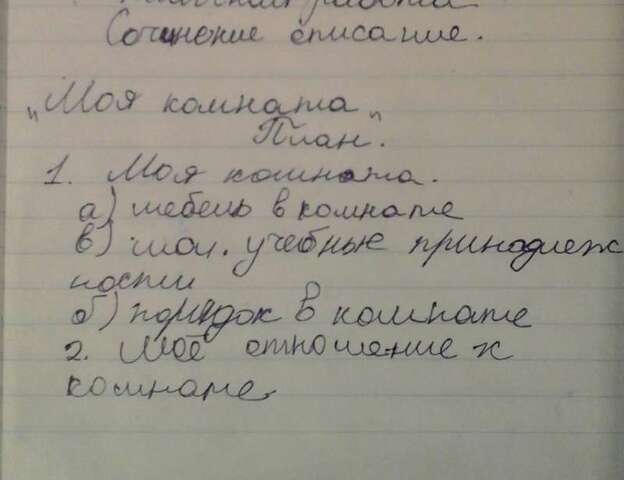 работа
Сочинение описание.
„Моя комната„
План.
1. Моя комната.
а) мебель в комнате
в) шол. учебные принадлеж
ности
б) порядок в комнате
2. Моё отношение к
комнате.